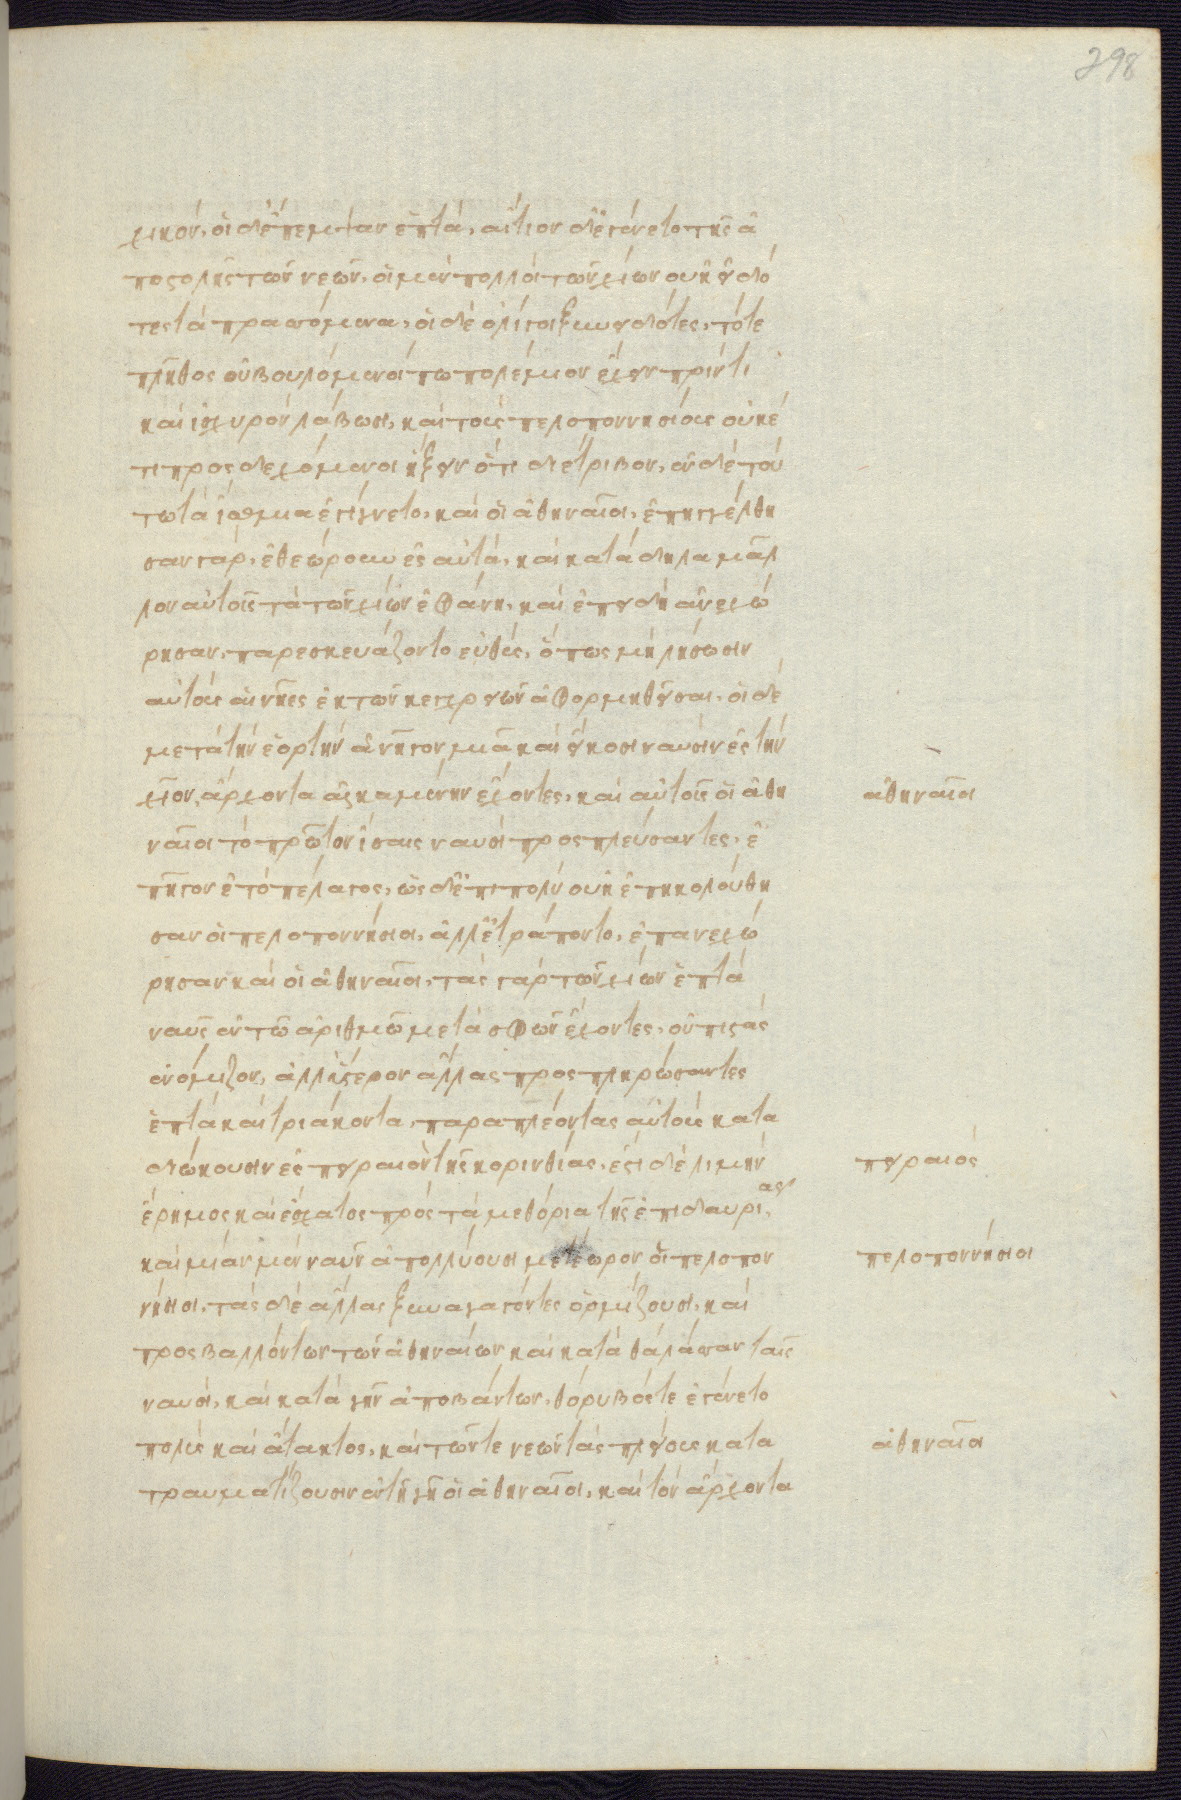 χικόν, οἱ δ᾽ἔπεμψαν ἑπτά, αἴτιον δ᾽ἐγένετο τῆς ἀ
ποστολῆς τῶν νεῶν, οἱ μὲν πολλοὶ τῶν χίων οὐκ εἰδό
τες τὰ πρασσόμενα, οἱ δὲ ὀλίγοι ξυνειδότες, τό τε
πλῆθος οὐ βουλόμενοί πω πολέμιον ἔχειν πρίν τι
καὶ ἰσχυρὸν λάβωσι, καὶ τοὺς πελοποννησίους οὐκέ
τι προσδεχόμενοι ἥξειν ὅτι διέτριβον, ἐν δὲ τού
τω τὰ ἴσθμια ἐγίγνετο, καὶ οἱ ἀθηναῖοι, ἐπηγγέλθη
σαν γὰρ, ἐθεώρουν ἐς αὐτά, καὶ κατάδηλα μᾶλ
λον αὐτοῖς τὰ τῶν χίων ἐφάνη, καὶ ἐπειδὴ ἀνεχώ
ρησαν, παρεσκευάζοντο εὐθὺς, ὅπως μὴ λήσωσιν
αὐτοὺς αἱ νῆες ἐκ τῶν κεγχρειῶν ἀφορμηθεῖσαι, οἱ δὲ
μετὰ τὴν ἑορτὴν ἀνῆγον μιᾶ καὶ εἴκοσι ναυσὶν ἐς τὴν
χῖον, ἄρχοντα ἀλκαμένην ἔχοντες, καὶ αὐτοῖς οἱ ἀθη ἀθηναῖοι
ναῖοι τὸ πρῶτον ἴσαις ναυσὶ προσπλεύσαντες, ἐ
πῆγον ἐς τὸ πέλαγος, ὡς δ᾽ἐπιπολὺ οὐκ ἐπηκολούθη
σαν οἱ πελοποννήσιοι, ἀλλ᾽ἐτράποντο, ἐπανεχώ
ρησαν καὶ οἱ ἀθηναῖοι, τὰς γὰρ τῶν χίων ἑπτὰ
ναῦς ἐν τῶ ἀριθμῶ μετὰ σφῶν ἔχοντες, οὐ πιστὰς
ἐνόμιζον, ἀλλ᾽ὕστερον ἄλλας προσπληρώσαντες
ἑπτὰ καὶ τριάκοντα, παραπλέοντας αὐτοὺς κατα
διώκουσιν ἐς πειραιὸν τῆς κορινθίας, ἔστι δὲ λιμὴν πειραιός
ἔρημος καὶ ἔσχατος πρὸς τὰ μεθόρια τῆς ἐπιδαυρίας,
καὶ μίαν μὲν ναῦν ἀπολλύουσι μετέωρον οἱ πελοπον πελοποννήσιοι
νήσιοι, τὰς δὲ ἄλλας ξυναγαγόντες ὁρμίζουσι, καὶ
προσβαλλόντων τῶν ἀθηναίων καὶ κατὰ θάλασσαν ταῖς
ναυσὶ, καὶ κατὰ γῆν ἀποβάντων, θόρυβός τε ἐγένετο
πολὺς καὶ ἄτακτος, καὶ τῶν τε νεῶν τὰς πλείους κατα ἀθηναῖοι
τραυματίζουσιν ἐν τῆ γῆ οἱ ἀθηναῖοι, καὶ τὸν ἄρχοντα
298